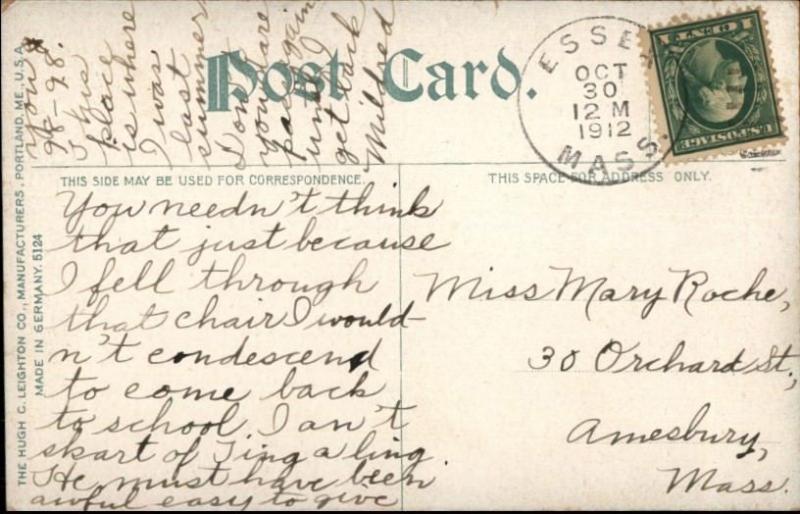 Post Card.
ESSEX
OCT
30
12 M
1912
MASS.
U.S. POSTAGE
THIS SIDE MAY BE USED FOR CORRESPONDENCE.
THIS SPACE FOR ADDRESS ONLY.
THE HUGH C. LEIGHTON CO., MANUFACTURERS, PORTLAND, ME., U.S.A.
MADE IN GERMANY. 5124
You needn't think
that just because
I fell through
that chair I would-
n't condescend
to come back
to school. I an't
skart of Ting a ling.
He must have been
awful easy to give
you
98-98.
This
place
is where
I was
last
summer
Don't
you dare
pair again
until I
get back
Mildred
Miss Mary Roche,
30 Orchard St.,
Amesbury,
Mass.